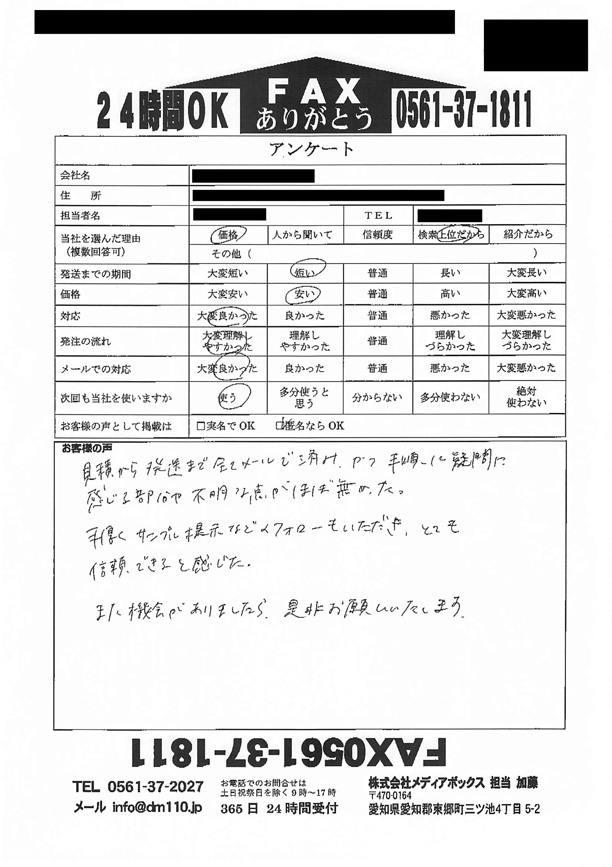 24時間OK FAX ありがとう 0561-37-1811
アンケート
会社名
住 所
担当者名 TEL
当社を選んだ理由(複数回答可) 価格 人から聞いて 信頼度 検索上位だから 紹介だから
その他( )
発送までの期間 大変短い 短い 普通 長い 大変長い
価格 大変安い 安い 普通 高い 大変高い
対応 大変良かった 良かった 普通 悪かった 大変悪かった
発注の流れ 大変理解しやすかった 理解しやすかった 普通 理解しづらかった 大変理解しづらかった
メールでの対応 大変良かった 良かった 普通 悪かった 大変悪かった
次回も当社を使いますか 使う 多分使うと思う 分からない 多分使わない 絶対使わない
お客様の声として掲載は □実名でOK □匿名ならOK
お客様の声
見積から発送まで全てメールで済み、かつ手順に疑問に
感じる部分や不明な点がほぼ無かった。
手厚くサンプル提示などのフォローもいただき、とても
信頼できると感じた。
また機会がありましたら、是非お願いいたします。
FAX0561-37-1811
TEL 0561-37-2027 お電話でのお問合せは 株式会社メディアボックス 担当 加藤
土日祝祭日を除く9時～17時 〒470-0164
メール info@dm110.jp 365日 24時間受付 愛知県愛知郡東郷町三ツ池4丁目5-2